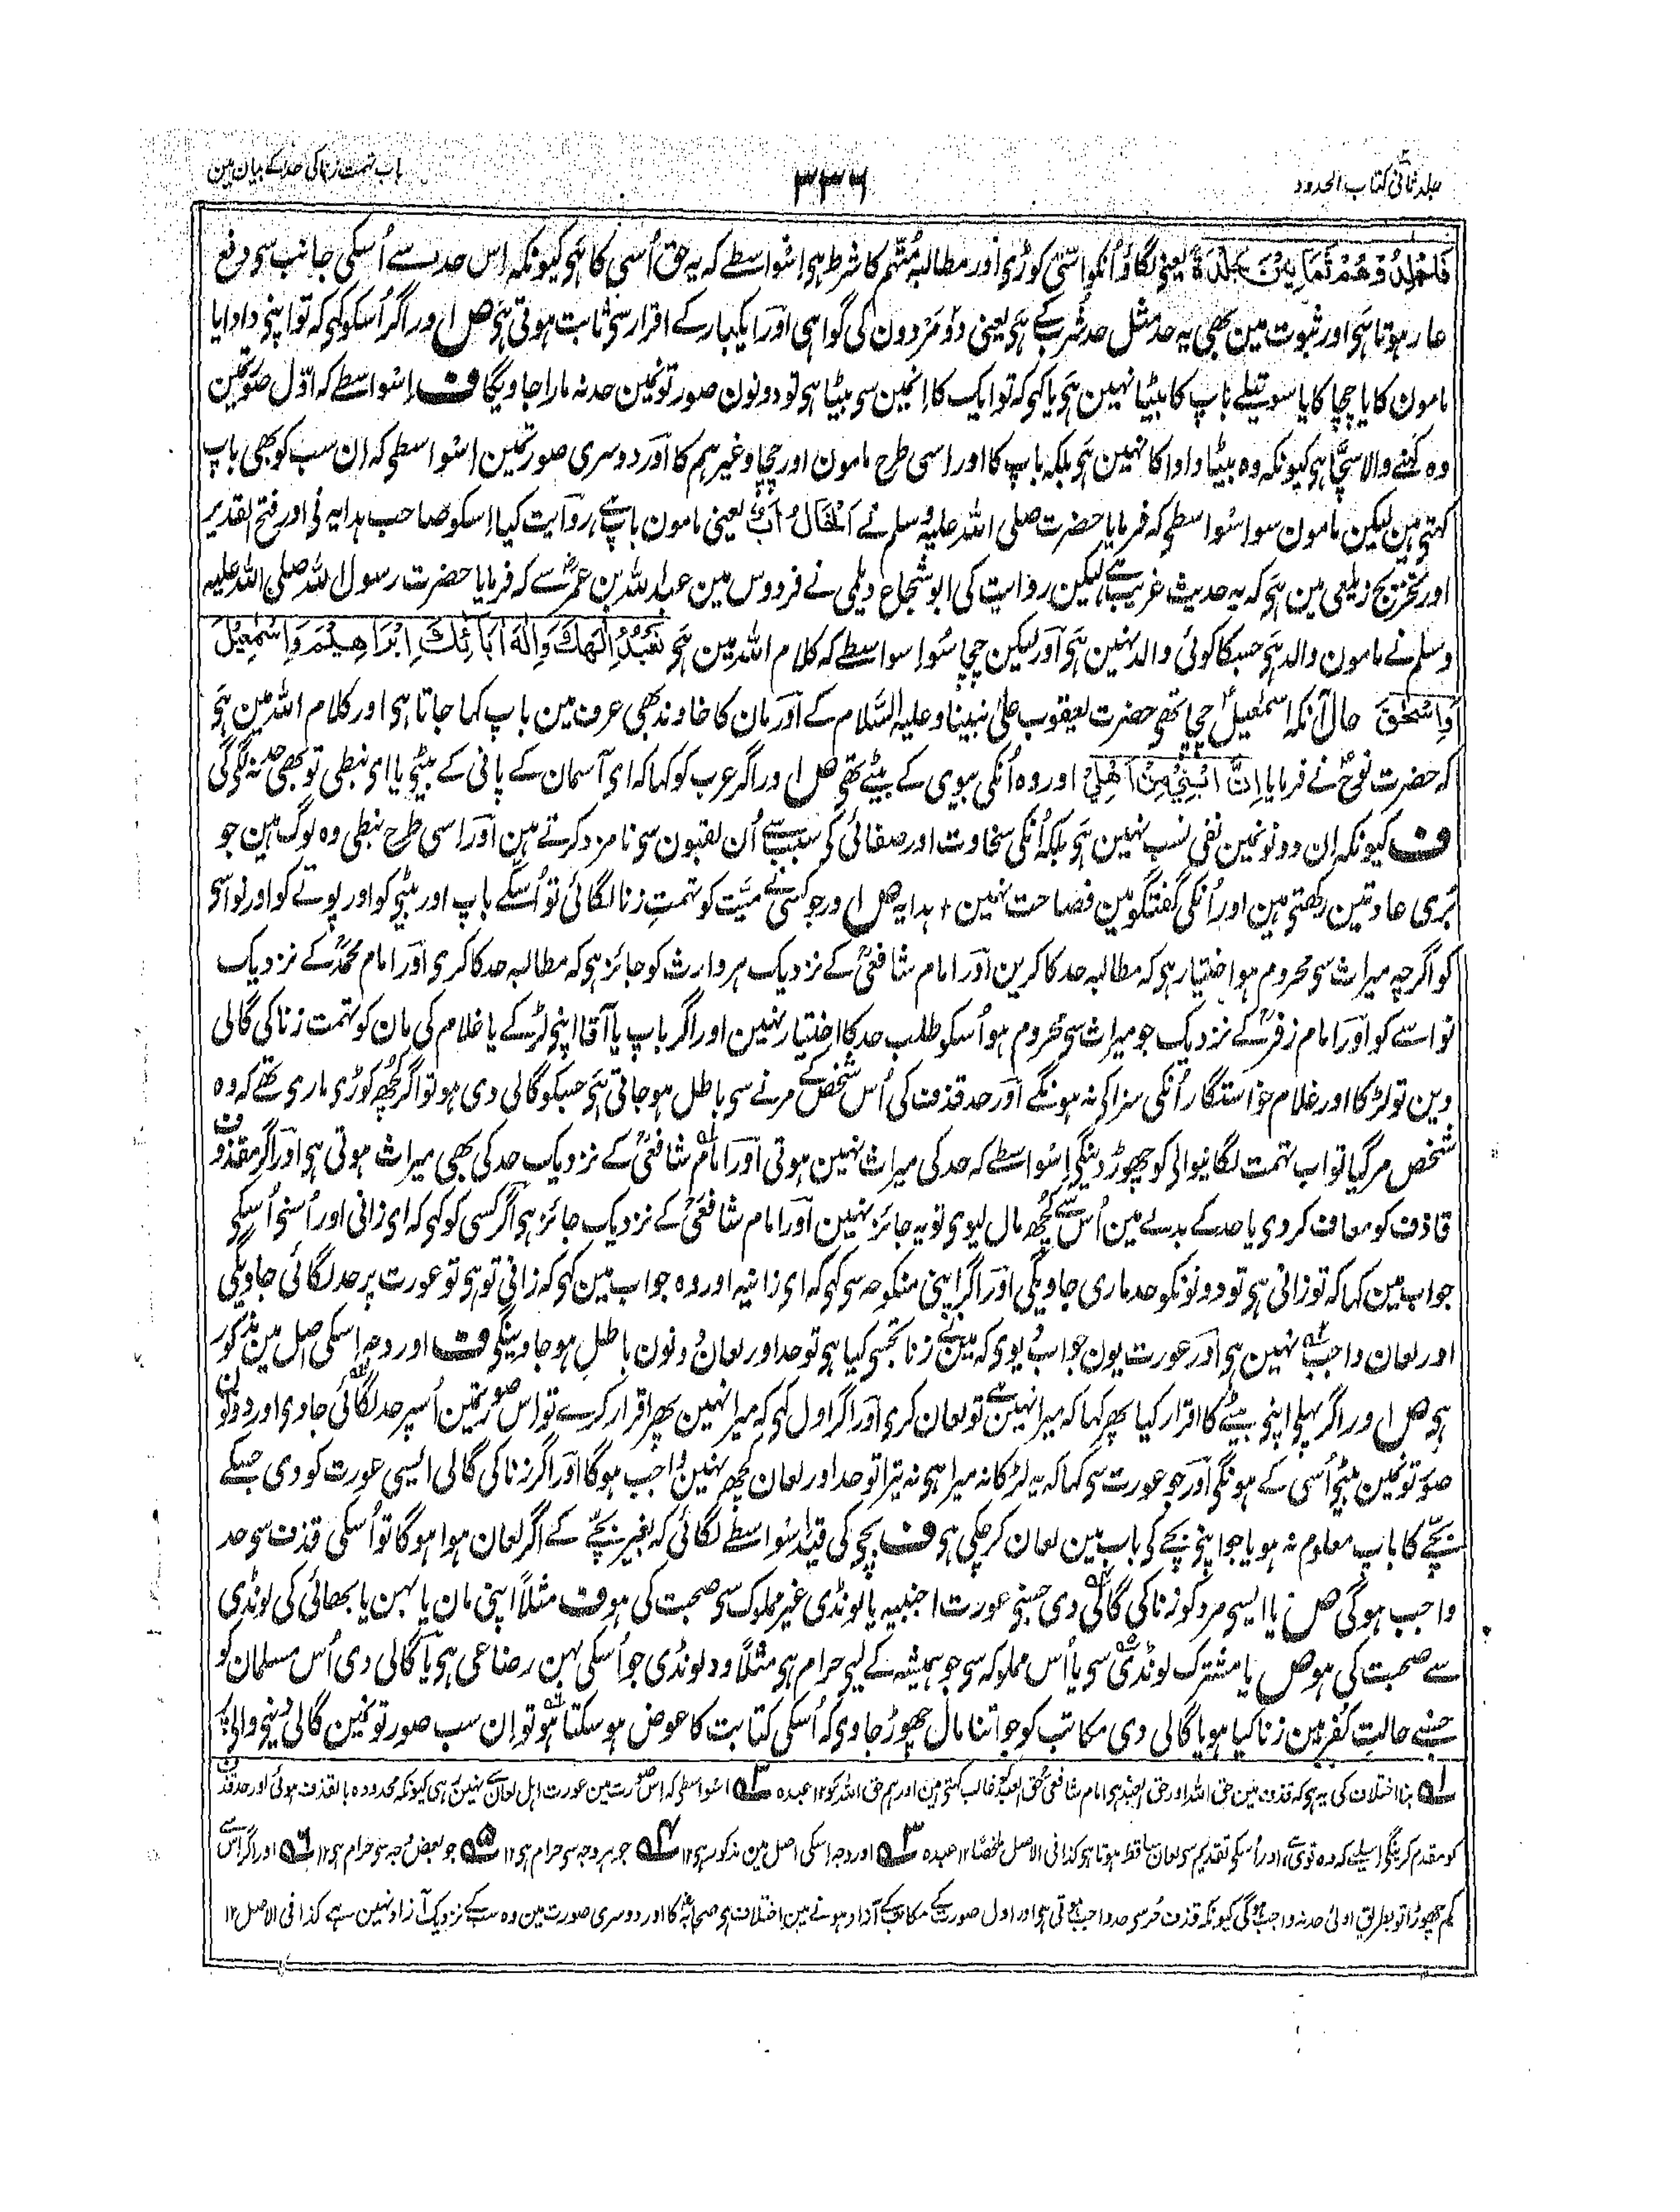 جلد ثانی کتاب الحدود
۳۳۶
باب تہمت زنا کی حد کے بیان مین
فَاجْلِدُوْهُمْ ثَمَانِيْنَ جَلْدَةً یعنی لگاؤ اُنکو اسّی کوڑی اور مطالبہ مُتہّم کا شرط ہی اسواسطے کہ یہ حق اُسی کا ہی کیونکہ اِس حد سے اُسکی جانب سی دفع
عار ہوتا ہی اور ثبوت مین بھی یہ حد مثل حد شُرب کے ہی یعنی دو مَردون کی گواہی اور ایکبار کے اقرار سی ثابت ہوتی ہی ص ل اور اگر اُسکو کہی کہ تو اپنی دادا یا
مامون کا یا چچا کا یا سوتیلے باپ کا بیٹا نہین ہی یا کہی کہ تو ایک کا اِنمین سی بیٹا ہی تو دونون صورتونمین حد نہ مارا جاویگا ف اسواسطے کہ اوّل صورتمین
وہ کہنے والا سچّا ہی کیونکہ وہ بیٹا دادا کا نہین ہی بلکہ باپ کا اور اسی طرح مامون اور چچا وغیرہم کا اور دوسری صورتمین اسواسطی کہ ان سب کو بھی باپ
کہتی ہین لیکن مامون سو اسواسطی کہ فرمایا حضرت صلی اللہ علیہ وسلم نے اَلْخَالُ اَبٌ یعنی مامون باپ ہے روایت کیا اِسکو صاحب ہدایہ نی اور فتح القدیر
اور تخریج زیلعی مین ہی کہ یہ حدیث غریب ہے لیکن روایت کی ابو شجاع دیلمی نے فردوس مین عبداللہ بن عمرؓ سے کہ فرمایا حضرت رسول اللہ صلی اللہ علیہ
وسلم نے مامون والد ہی جسکا کوئی والد نہین ہی اور لیکن چچا سُو اسواسطے کہ کلام اللہ مین ہی نَعْبُدُ اِلٰهَكَ وَاِلٰهَ اٰبَائِكَ اِبْرَاهِيْمَ وَاِسْمٰعِيْلَ
وَاِسْحٰقَ حال آنکہ اسمٰعیلؑ چچا تھی حضرت یعقوب علیٰ نبینا وعلیہ السّلام کے اور مان کا خاوند بھی عرف مین باپ کہا جاتا ہی اور کلام اللہ مین ہی
کہ حضرت نوحؑ نے فرمایا اِنَّ ابْنِيْ مِنْ اَهْلِيْ اور وہ اُنکی بیوی کے بیٹے تھی ص ل اور اگر عرب کو کہا کہ ای آسمان کے پانی کے بیٹی یا ای نبطی تو بھی حد نہ لگی گی
ف کیونکہ اِن دونونمین نفی نسب نہین ہی بلکہ اُنکی سخاوت اور صفائی کی سبب سے اُن لقبون سی نامزد کرتے ہین اور اسی طرح نبطی وہ لوگ ہین جو
بُری عادتین رکھتی ہین اور اُنکی گفتگو مین فصاحت نہین + ہدایہ ص ل اور جو کسی نے میّت کو تہمتِ زنا لگائی تو اُسکے باپ اور بیٹی کو اور پوتے کو اور نواسی
کو اگرچہ میراث سی محروم ہو اختیار ہی کہ مطالبہ حد کا کرین اور امام شافعیؒ کے نزدیک ہر وارث کو جائز ہی کہ مطالبہ حد کا کری اور امام محمدؒ کے نزدیک
نواسے کو اور امام زفرؒ کے نزدیک جو میراث سی محروم ہو اُسکو طلب حد کا اختیار نہین اور اگر باپ یا آقا اپنی لڑکے یا غلام کی مان کو تہمت زنا کی گالی
دین تو لڑکا اور غلام خواستگار اُنکی سزا کی نہ ہونگے اور حد قذف کی اُس شخص کے مرنے سی باطل ہو جاتی ہی جسکو گالی دی ہو تو اگر کُچھ کوڑی ماری تھے کہ وہ
شخص مر گیا تو اب تہمت لگانیوالی کو چھوڑ دینگی اسواسطے کہ حد کی میراث نہین ہوتی اور امام شافعیؒ کے نزدیک حد کی بھی میراث ہوتی ہی اور اگر مقذوف
قاذف کو معاف کر دی یا حد کے بدلے مین اُس سے کُچھ مال لیوی تو یہ جائز نہین اور امام شافعیؒ کے نزدیک جائز ہی اگر کسی کو کہی کہ ای زانی اور اُسنی اُسکی
جواب مین کہا کہ تو زانی ہی تو دونونکو حد ماری جاویگی اور اگر اپنی منکوحہ سی کہی کہ ای زانیہ اور وہ جواب مین کہی کہ زانی تو ہی تو عورت پر حد لگائی جاویگی
اور لعان واجب نہین ہی اور عورت یون جواب دیوی کہ مینے زنا تجھی کیا ہی تو حد اور لعان دونون باطل ہو جاوینگی ف اور وجہ اِسکی اصل مین مذکور
ہی ص ل اور اگر پہلی اپنی بیٹے کا اقرار کیا پھر کہا کہ میرا نہین ہے تو لعان کری اور اگر اول کہی کہ میرا نہین پھر اقرار کرے تو اس صورتمین اُسپر حد لگائی جاوی اور دونون
صورتونمین بیٹی اُسی کے ہونگی اور جو عورت سی کہا کہ یہ لڑکا نہ میرا ہی نہ تیرا تو حد اور لعان کچھ نہین واجب ہوگا اور اگر زنا کی گالی ایسی عورت کو دی جسکے
بچّے کا باپ معلوم نہ ہو یا جو اپنی بچّے کی باب مین لعان کر چکی ہی ف بچی کی قید اسواسطے لگائی کہ بغیر بچّے کے اگر لعان ہوا ہوگا تو اُسکی قذف سی حد
واجب ہوگی ص یا ایسی مرد کو زنا کی گالی دی جسنی عورت اجنبیہ یا لونڈی غیر مملوک سی صحبت کی ہو ف مثلاً اپنی مان یا بہن یا بھائی کی لونڈی
سے صحبت کی ہو ص ل یا مشترک لونڈی سی یا اُس مملوکہ سی جو ہمیشہ کے لیی حرام ہی مثلاً وہ لونڈی جو اُسکی بہن رضاعی ہی یا گالی دی اُس مسلمان کو
جسنے حالتِ کُفر مین زنا کیا ہو یا گالی دی مکاتب کو جو اتنا مال چھوڑ جاوی کہ اُسکی کتابت کا عوض ہو سکتا ہو تو اِن سب صورتونمین گالی دینی والی پر
۱ بنا اختلاف کی یہ ہی کہ قذف مین حق اللہ اور حق العبد ہی امام شافعیؒ حق العبد کو غالب کہتی ہین اور ہم حق اللہ کو ۱۲ عبدہ ۲ اسواسطی کہ اِس صورت مین عورت اہل لعان سے نہین ہی کیونکہ محدودہ بالقذف ہوئی اور حد قذف
کو مقدم کرینگی اسلیے کہ وہ قوی ہے اور اُسکی تقدیم سی لعان ساقط ہوتا ہی کذا فی الاصل ملخصًا ۱۲ عبدہ ۳ اور وجہ اِسکی اصل مین مذکور ہی ۱۲ ۴ جو ہر وجہ سی حرام ہی ۱۲ ۵ جو بعض وجہ سی حرام ہی ۱۲ ۶ اور اگر اِس سے
کم چھوڑا تو بطریق اولیٰ حد نہ واجب ہوگی کیونکہ قذف حُر سی حد واجب ہوتی ہی اور اول صورت کے مکاتب کے آزاد ہونے مین اختلاف ہی صحابہؓ کا اور دوسری صورت مین وہ سب کے نزدیک آزاد نہین ہے کذا فی الاصل ۱۲